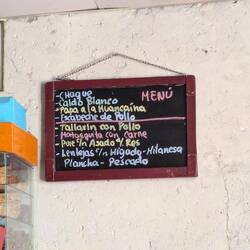 MENÚ
- Chaque
- Caldo Blanco
- Papa a la Huancaína
- Escabeche de Pollo
- Tallarín con Pollo
- Matasquita con Carne
- Puré c/n Asado d/ Res
- Lentejas c/n Hígado - Milanesa
Plancha - Pescado